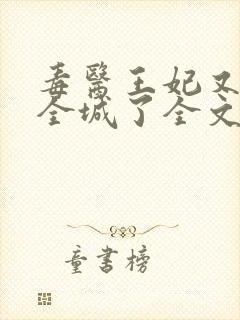 毒醫王妃又
全城了全文
童書榜